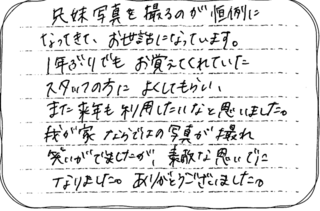 兄妹写真を撮るのが恒例に
なってきて、お世話になっています。
1年ぶりでもお覚えてくれていた
スタッフの方によくしてもらい、
また来年も利用したいなと思いました。
我が家ならではの写真が撮れ
笑いがでましたが素敵な思いでに
なりました。ありがとうございました。